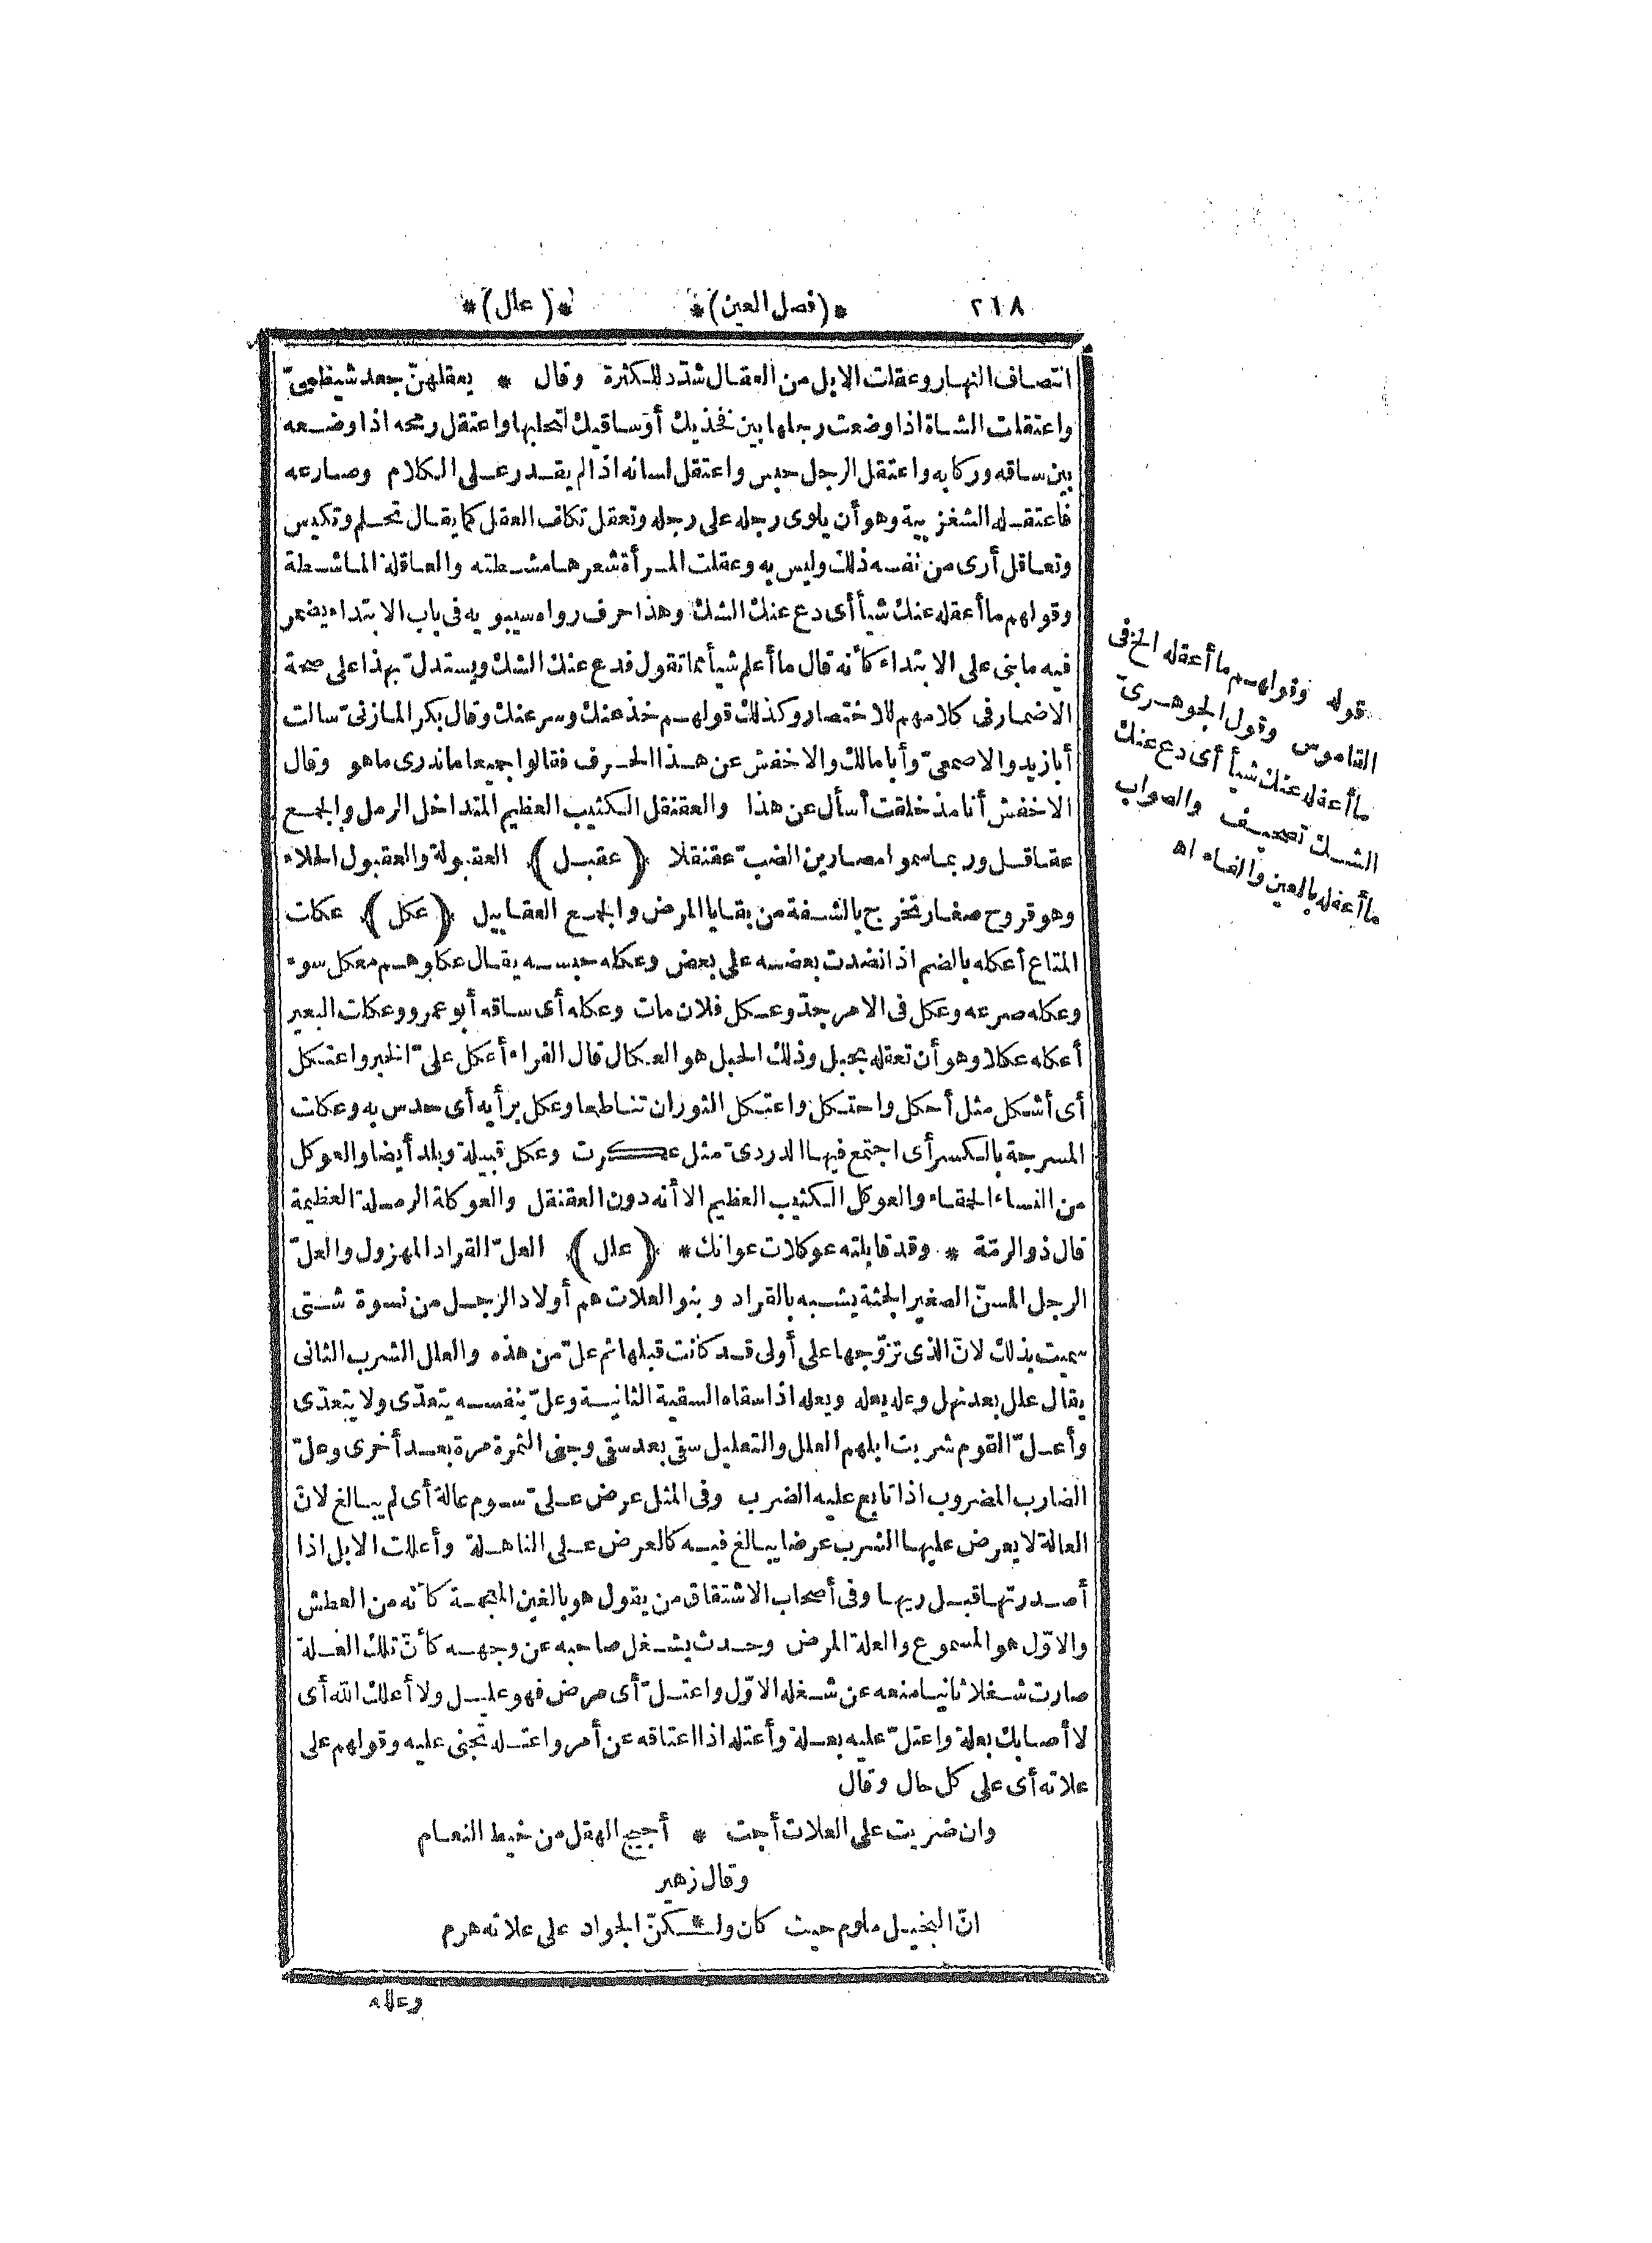 ٢١٨ *(فصل العين)* *(علل)*
انتصاف النهار وعقلت الابل من العقال شدّد للكثرة وقال * يعقلهنّ جعد شيظميّ
واعتقلت الشاة اذا وضعت رجلها بين فخذيك أو ساقيك لتحلبها واعتقل رمحه اذا وضعه
بين ساقه وركابه واعتقل الرجل حبس واعتقل لسانه اذا لم يقدر على الكلام وصارعه
فاعتقله الشغزبية وهو أن يلوى رجله على رجله وتعقل تكلف العقل كما يقال تحلم وتكيس
وتعاقل أرى من نفسه ذلك وليس به وعقلت المرأة شعرها مشطته والعاقلة الماشطة
وقولهم ما أعقله عنك شيأ أى دع عنك الشك وهذا حرف رواه سيبويه فى باب الابتداء يضمر
فيه ما بنى على الابتداء كأنه قال ما أعلم شيأ مما تقول فدع عنك الشك ويستدلّ بهذا على صحة
الاضمار فى كلامهم للاختصار وكذلك قولهم خذ عنك وسر عنك وقال بكر المازنىّ سالت
أبازيد والاصمعىّ وأبا مالك والاخفش عن هذا الحرف فقالوا جميعا ما ندرى ما هو وقال
الاخفش أنا مذ خلقت أسأل عن هذا والعقنقل الكثيب العظيم المتداخل الرمل والجمع
عقاقل وربما سموا مصارين الضبّ عقنقلا (عقبل) العقبولة والعقبول الحلاء
وهو قروح صغار تخرج بالشفة من بقايا المرض والجمع العقابيل (عكل) عكلت
المتاع أعكله بالضم اذا نضدت بعضه على بعض وعكله حبسه يقال عكلوهم معكل سوء
وعكله صرعه وعكل فى الامر جدّ وعكل فلان مات وعكله أى ساقه أبو عمرو وعكلت البعير
أعكله عكلا وهو أن تعقله بحبل وذلك الحبل هو العكال قال الفراء أعكل علىّ الخبر واعتكل
أى أشكل مثل أحكل واحتكل واعتكل الثوران تناطحا وعكل برأيه أى حدس به وعكلت
المسرجة بالكسر أى اجتمع فيها الدردىّ مثل عكرت وعكل قبيلة وبلد أيضا والعوكل
من النساء الحمقاء والعوكل الكثيب العظيم الا أنه دون العقنقل والعوكلة الرملة العظيمة
قال ذو الرمّة * وقد قابلته عوكلات عوانك * (علل) العلّ القراد المهزول والعلّ
الرجل المسنّ الصغير الجثة يشبه بالقراد وبنو العلات هم أولاد الرجل من نسوة شتى
سميت بذلك لانّ الذى تزوّجها على أولى قد كانت قبلها ثم علّ من هذه والعلل الشرب الثانى
يقال علل بعد نهل وعله يعله ويعله اذا سقاه السقية الثانية وعلّ بنفسه يتعدّى ولا يتعدّى
وأعلّ القوم شربت ابلهم العلل والتعليل سقى بعد سقى وجنى الثمرة مرة بعد أخرى وعلّ
الضارب المضروب اذا تابع عليه الضرب وفى المثل عرض علىّ سوم عالة أى لم يبالغ لانّ
العالة لا يعرض عليها الشرب عرضا يبالغ فيه كالعرض على الناهلة وأعللت الابل اذا
أصدرتها قبل ريها وفى أصحاب الاشتقاق من يقول هو بالغين المعجمة كأنه من العطش
والاوّل هو المسموع والعلة المرض وحدث يشغل صاحبه عن وجهه كأنّ تلك العلة
صارت شغلا ثانيا منعه عن شغله الاوّل واعتلّ أى مرض فهو عليل ولا أعلك الله أى
لا أصابك بعلة واعتلّ عليه بعلة وأعتله اذا اعتاقه عن أمر واعتله تجنى عليه وقولهم على
علاته أى على كل حال وقال
وان ضربت على العلات أجت * أجيج الهقل من خيط النعام
وقال زهير
انّ البخيل ملوم حيث كان ول*كنّ الجواد على علاته هرم
وعلله
قوله وقولهم ما أعقله الخ فى
القاموس وقول الجوهرىّ
ما أعقله عنك شيأ أى دع عنك
الشك تصحيف والصواب
ما أعفله بالعين والفاء اه